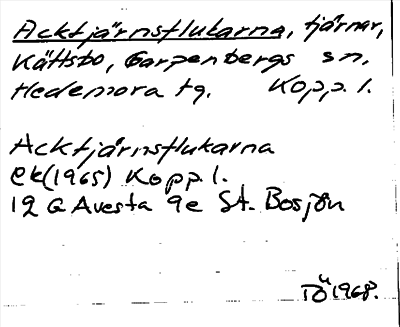 Acktjärnsflukarna, tjärnar,
Kättsbo, Garpenbergs sn,
Hedemora tg. Kopp. l.
Acktjärnsflukarna
ek(1965) Kopp l.
12 G Avesta 9e St. Bosjön
TÖ 1968.